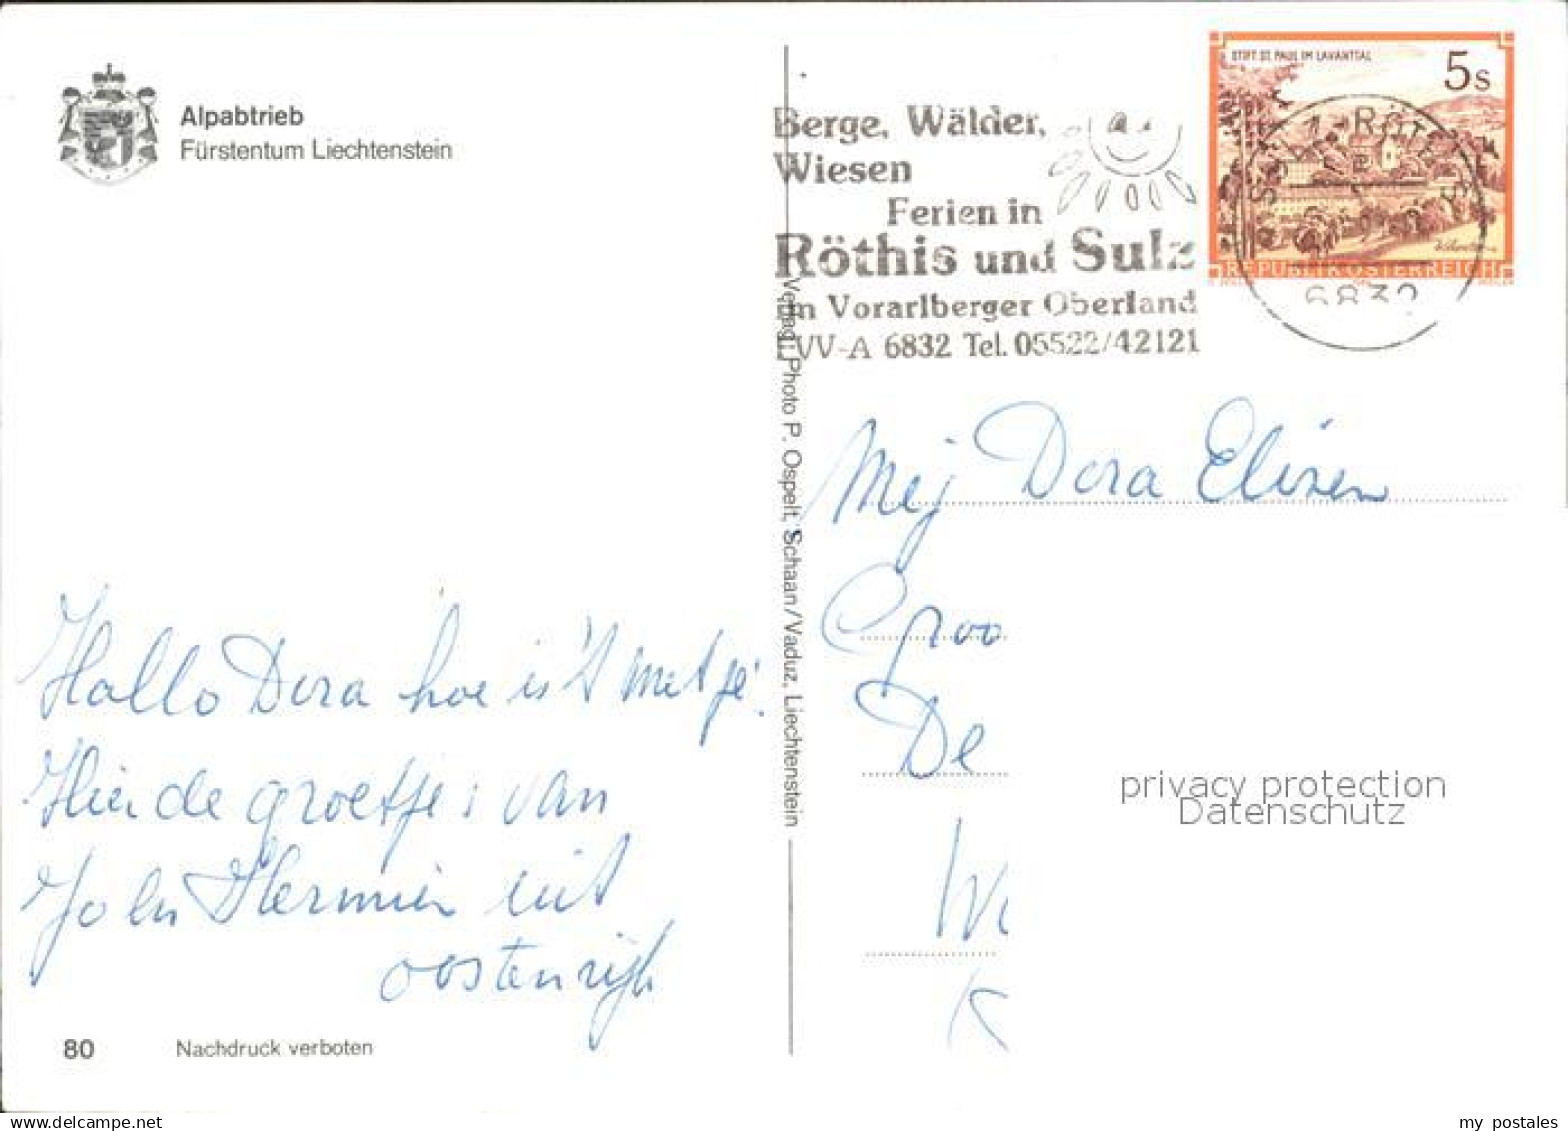 Alpabtrieb
Fürstentum Liechtenstein
Berge, Wälder,
Wiesen
Ferien in
Röthis und Sulz
im Vorarlberger Oberland
VV-A 6832 Tel. 05522/42121
STIFT ST. PAUL IM LAVANTTAL
5s
REPUBLIK ÖSTERREICH
SULZ-RÖTHIS
6832
Verlag: Photo P. Ospelt, Schaan/Vaduz, Liechtenstein
Mej Dora Elisen
Groo
De
K
Hallo Dora hoe is 't met je.
Hier de groetjes van
John Hermien uit
oostenrijk
privacy protection
Datenschutz
80 Nachdruck verboten
my postales